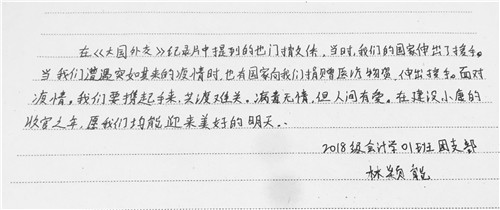 在《大国外交》纪录片中提到的也门撤侨，当时，我们的国家伸出了援手。
当我们遭遇突如其来的疫情时，也有国家向我们捐赠医疗物资，伸出援手。面对
疫情，我们要携起手来，共渡难关。病毒无情，但人间有爱。在建设小康的
收官之年，愿我们均能迎来美好的明天。
2018级会计学01班团支部
林颖能